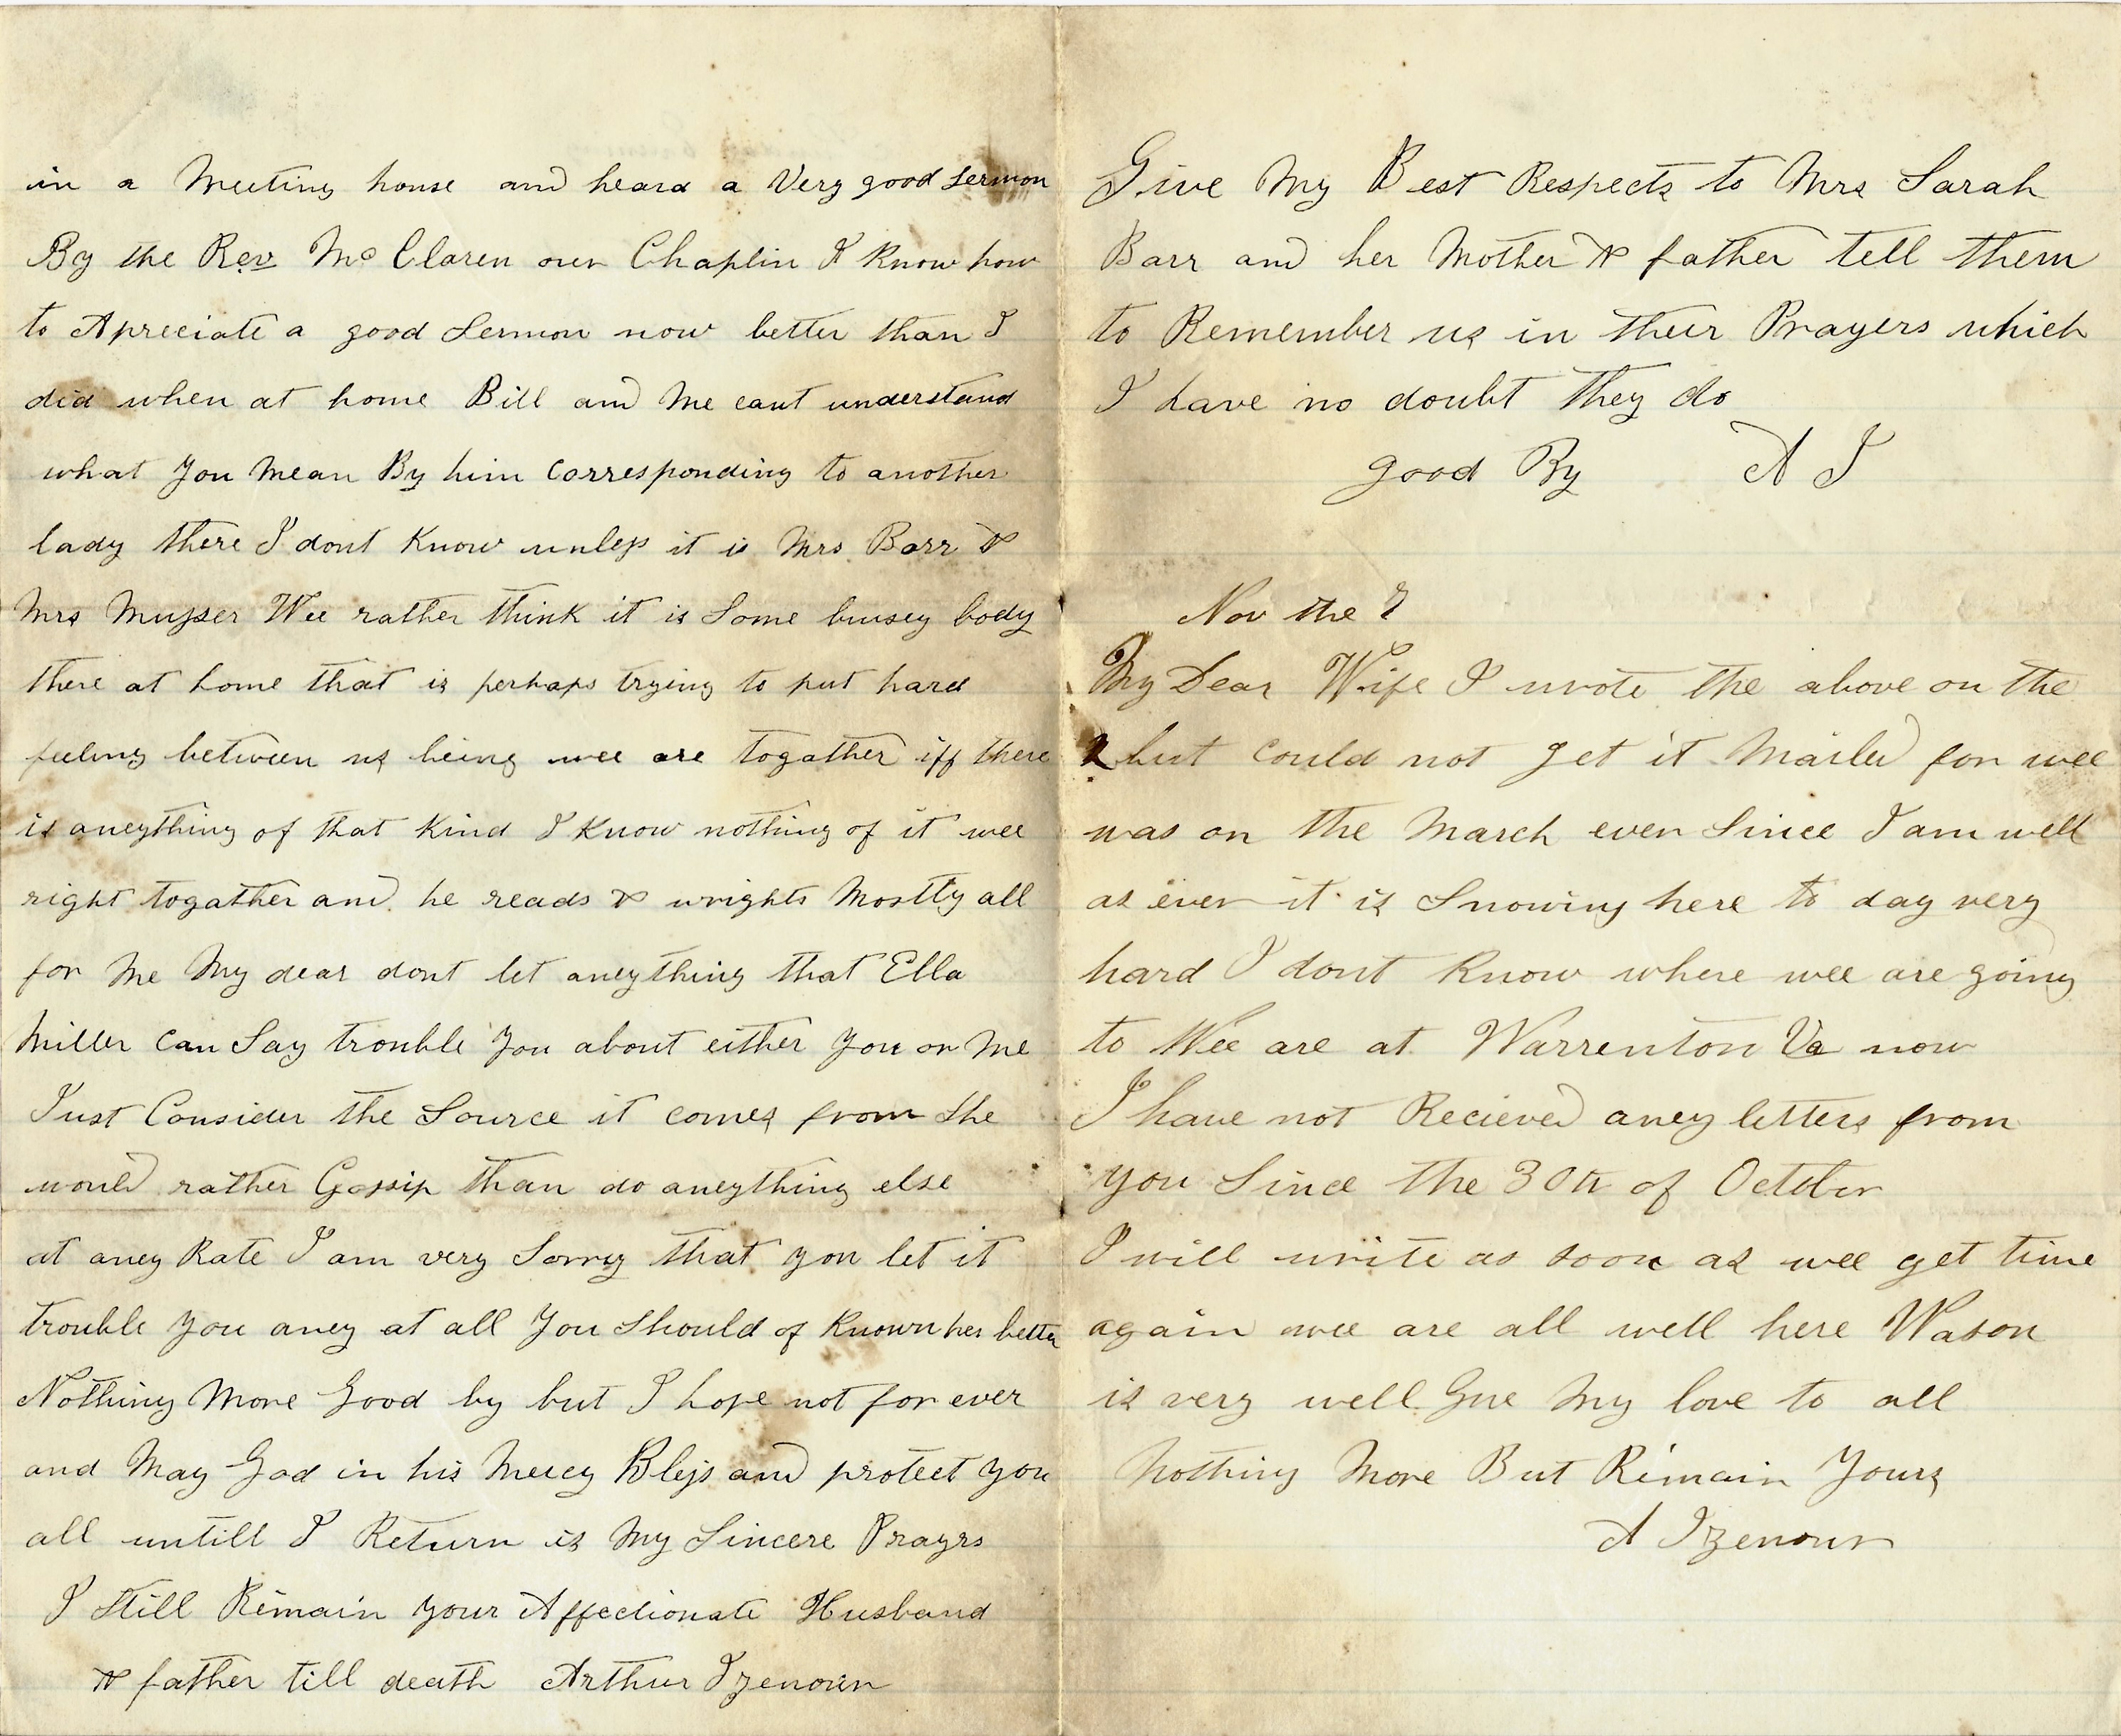 in a Meeting house and heard a Very good Sermon
By the Rev Mc Claren our Chaplin I Know how
to Apreciate a good Sermon now better than I
did when at home Bill and Me cant understand
what You Mean By him Corresponding to another
lady there I dont Know unless it is Mrs Barr &
Mrs Musser Wee rather think it is Some buisey body
there at home that is perhaps trying to put hard
feeling between us being wee are togather iff there
is aneything of that Kind I Know nothing of it wee
right togather and he reads & wrights Mostly all
for Me My dear dont let aneything that Ella
Miller Can Say trouble You about either You or Me
Just Consider the Source it comes from She
would rather Gossip than do aneything else
at aney Rate I am very Sorry that you let it
trouble You aney at all You Should of Known her better
Nothing More Good by but I hope not for ever
and May God in his Mercy Bless and protect you
all untill I Return is My Sincere Prayrs
I Still Remain your Affectionate Husband
& father till death Arthur Izenour
Give My Best Respects to Mrs Sarah
Barr and her Mother & father tell them
to Remember us in their Prayers which
I have no doubt they do
good By A I
Nov the 7
My Dear Wife I wrote the above on the
2 but Could not get it Mailed for wee
was on the March ever Since I am well
as ever it is Snowing here to day very
hard I dont Know where wee are going
to Wee are at Warrenton Va now
I have not Recieved aney letters from
you Since the 30th of October
I will write as soon as wee get time
again wee are all well here Wason
is very well Give My love to all
Nothing More But Remain Yours
A Izenour